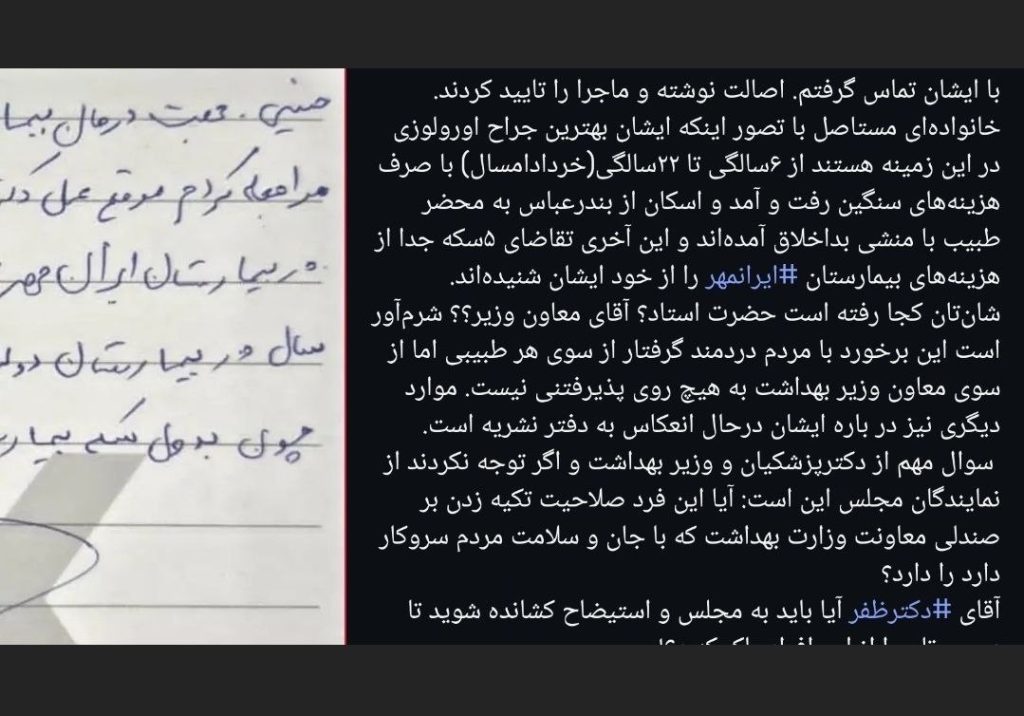 با ایشان تماس گرفتم. اصالت نوشته و ماجرا را تایید کردند.
خانواده‌ای مستاصل با تصور اینکه ایشان بهترین جراح اورولوزی
در این زمینه هستند از ۶سالگی تا ۲۲سالگی(خردادامسال) با صرف
هزینه‌های سنگین رفت و آمد و اسکان از بندرعباس به محضر
طبیب با منشی بداخلاق آمده‌اند و این آخری تقاضای ۵سکه جدا از
هزینه‌های بیمارستان #ایرانمهر را از خود ایشان شنیده‌اند.
شان‌تان کجا رفته است حضرت استاد؟ آقای معاون وزیر؟؟ شرم‌آور
است این برخورد با مردم دردمند گرفتار از سوی هر طبیبی اما از
سوی معاون وزیر بهداشت به هیچ روی پذیرفتنی نیست. موارد
دیگری نیز در باره ایشان درحال انعکاس به دفتر نشریه است.
سوال مهم از دکترپزشکیان و وزیر بهداشت و اگر توجه نکردند از
نمایندگان مجلس این است: آیا این فرد صلاحیت تکیه زدن بر
صندلی معاونت وزارت بهداشت که با جان و سلامت مردم سروکار
دارد را دارد؟
آقای #دکترظفر آیا باید به مجلس و استیضاح کشانده شوید تا
جهت درمان
مراجعه کردم موقع عمل
در بیمارستان ایران مهر
سال در بیمارستان
چون بدول سکه